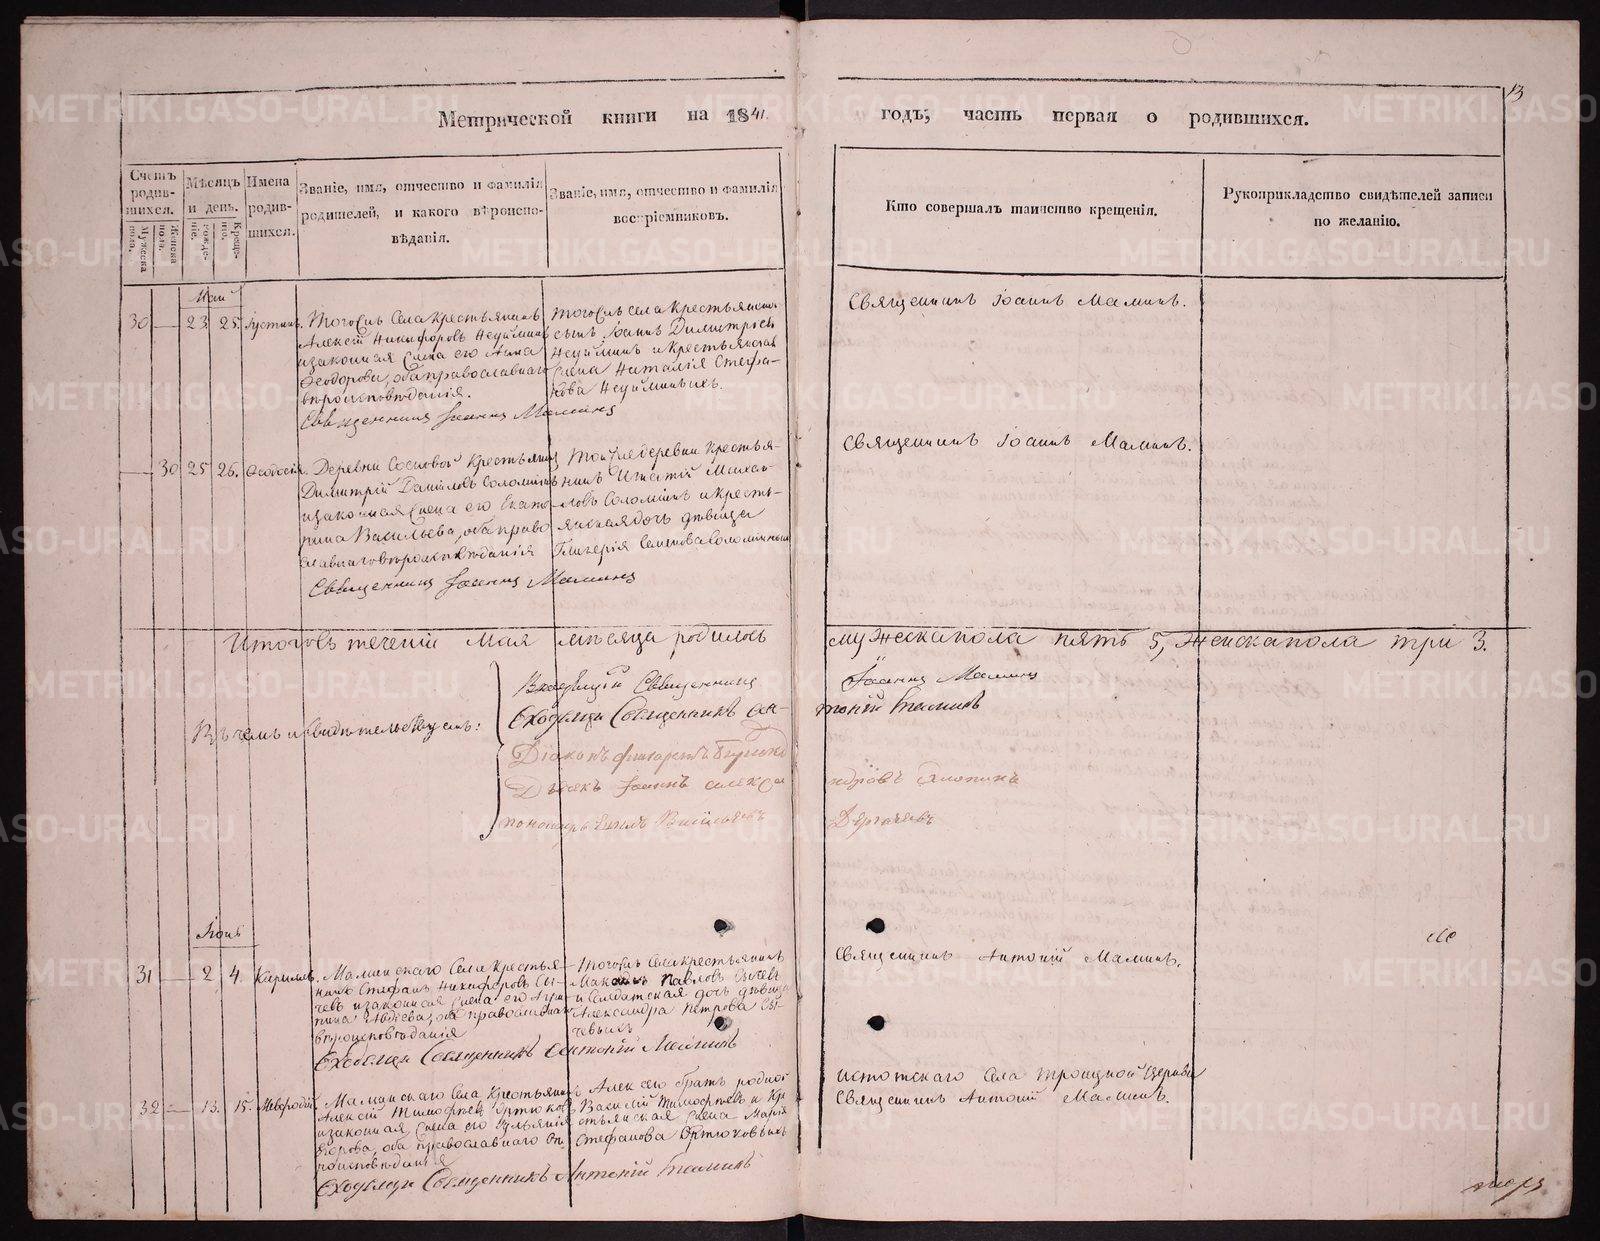 13
Метрической книги на 1841. годъ, часть первая о родившихся.
Счетъ родив-шихся.
Мужеска пола.
Женска пола.
Мѣсяцъ и день.
рожде-ніе.
Креще-ніе.
Имена родив-шихся.
Званіе, имя, отчество и фамилія
родителей, и какого вѣроиспо-
вѣданія.
Званіе, имя, отчество и фамилія
воспріемниковъ.
Кто совершалъ таинство крещенія.
Рукоприкладство свидѣтелей записи
по желанію.
Май
30 — 23 25. Іустинъ.
Тогожъ Села Крестьянинъ
Алексій Никифоровъ Неуйминъ
изаконная Жена его Анна
Феодорова, оба православнаго
вѣроисповѣданія.
Священникъ Іоаннъ Маминъ
Тогожъ села Крестьянскій
сынъ Іоаннъ Димитріевъ
Неуйминъ и Крестьянская
Жена Наталія Стефа-
нова Неуйминыхъ.
Священникъ Іоаннъ Маминъ.
— 30 25 26. Феодосія.
Деревни Сосновой Крестьянинъ
Димитрій Даниловъ Соломеинъ
изаконная Жена его Екате-
рина Васильева, оба право
славнаго вѣроисповѣданія
Священникъ Іоаннъ Маминъ
Тойже деревни Крестья-
нинъ Игнатій Михаи-
ловъ Соломеинъ и Кресть-
янская дочь дѣвица
Гликерія Семенова Соломеиныхъ
Священникъ Іоаннъ Маминъ.
Итого въ теченіи Мая мѣсяца родилось мужеска пола пять 5, женска пола три 3.
Въ чемъ и свидѣтельствуемъ:
Священникъ Іоаннъ Маминъ
Священникъ Антоній Маминъ
Діаконъ
Дьячекъ Іоаннъ Александровъ
Пономарь Васильевъ Дергачевъ
Іюнь
31 — 2 4. Кириллъ.
Маминскаго Села Крестья-
нинъ Стефанъ Никифоровъ Сы-
чевъ изаконная Жена его Агри-
пина Авдіева, оба православнаго
вѣроисповѣданія
Священникъ Антоній Маминъ
Тогожъ Села крестьянинъ
Павловъ Сычевъ
и Солдатская дочь дѣвица
Александра Петрова Сы-
чевыхъ
Священникъ Антоній Маминъ.
32 — 13. 15. Меѳодій.
Маминскаго Села Крестьянинъ
Алексій Тимофеевъ Ортюковъ
изаконная Жена его Ульянія
Егорова, оба православнаго вѣ-
роисповѣданія
Священникъ Антоній Маминъ
Алексею братъ родной
Василій Тимофеевъ и Кре-
стьянская Жена Марія
Стефанова Ортюковыхъ
Истокскаго Села Троицкой Церкви
Священникъ Антоній Маминъ.
METRIKI.GASO-URAL.RU